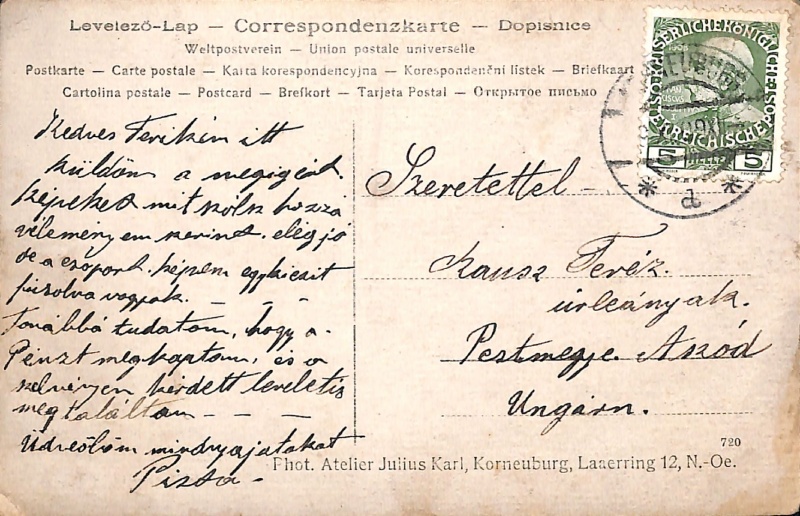 Levelező-Lap — Correspondenzkarte — Dopisnice
Weltpostverein — Union postale universelle
Postkarte — Carte postale — Karta korespondencyjna — Korespondenční lístek — Briefkaart
Cartolina postale — Postcard — Brefkort — Tarjeta Postal — Открытое письмо
Kedves Terikém itt
küldöm a megigért
képeket mit szólsz hozzá
véleményem szerint elég jó
de a csoport képem egy kicsit
vagyok — —
Továbbá tudatom, hogy a
Pénzt megkaptam, és a
szelvényen kérdett leveletis
megtaláltam — — —
Üdvözlöm mindnyajatokat
Pista —
Szeretettel
Kausz Teréz.
úrleányak.
Pestmegye Aszód
Ungarn.
KAISERLICHE KÖNIGLICHE
ÖSTERREICHISCHE POST
5 HELLER 5
1908
720
Phot. Atelier Julius Karl, Korneuburg, Laaerring 12, N.-Oe.